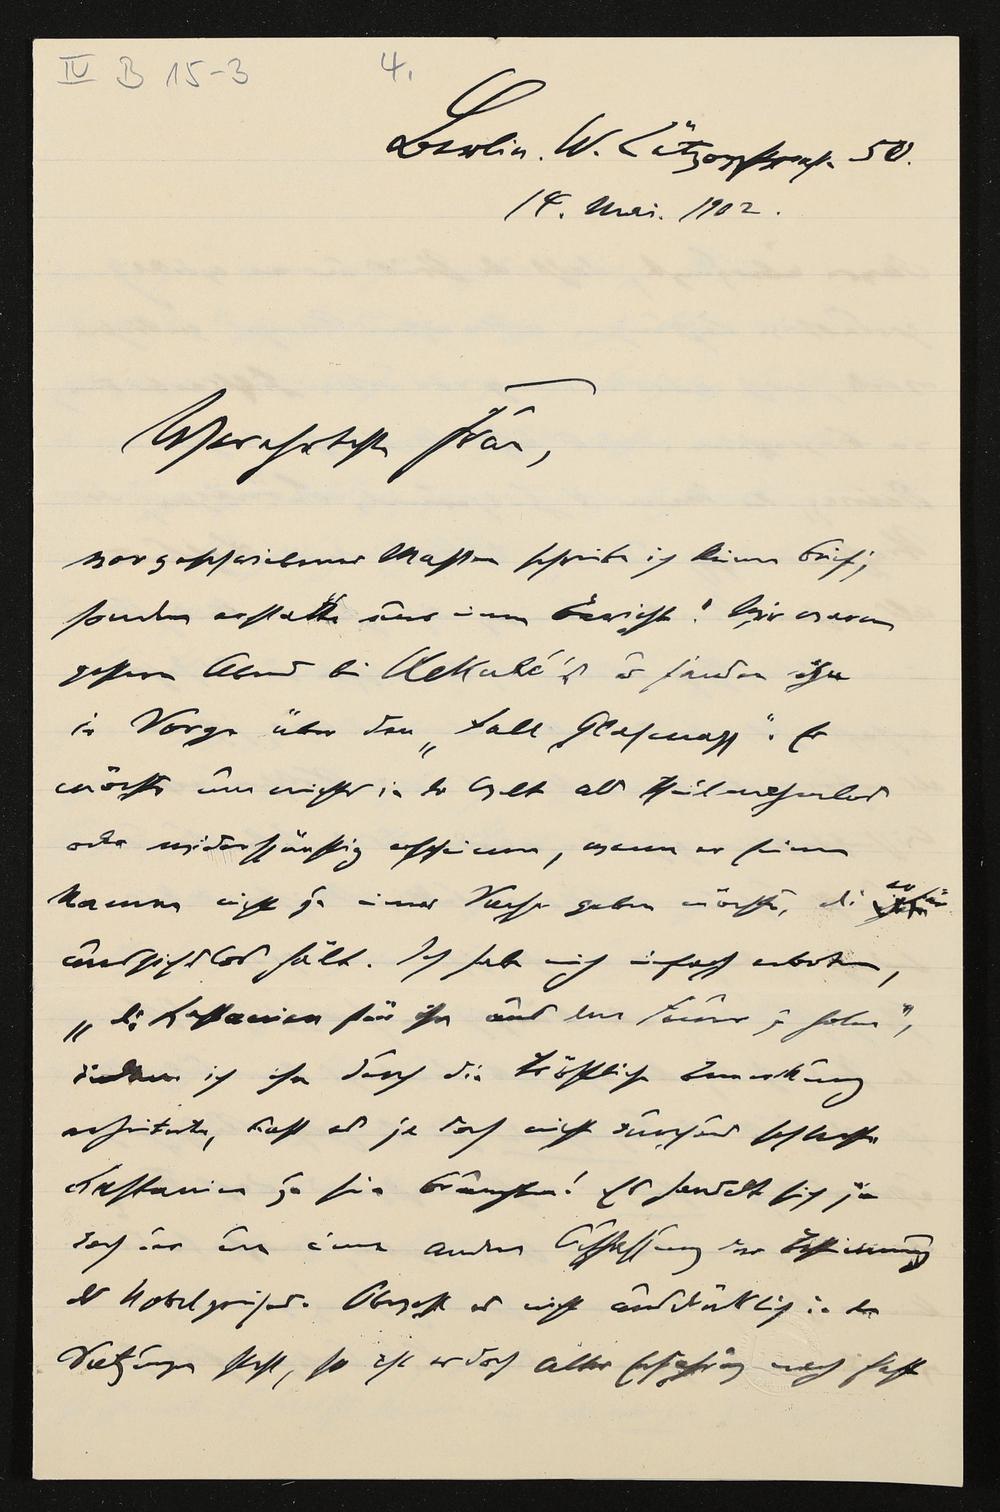 IV B 15-3 4.
Berlin. W. Lützowstrasse 50.
14. Mai. 1902.
Verehrteste Frau,
vorgeschriebener Massen schreibe ich keinen Brief,
sondern erstatte nur einen Bericht! Wir waren
gestern Abend bei Kekulé's u fanden ihn
in Sorge über den „Fall
möchte nun nicht in der Welt als
oder widerspänstig erscheinen, wenn er seinen
Namen nicht zu einer Sache geben möchte, die er für
aussichtslos hält. Ich habe mich einfach erboten,
„die Kastanien für ihn aus dem Feuer zu holen",
indem ich ihn durch die tröstliche Bemerkung
erheiterte, dass es ja doch nicht durchaus schlechte
Kastanien zu sein brauchten! Es handelt sich ja
doch nur um eine andere Auffassung der Bestimmung
des Nobelpreises. Obwohl es nicht ausdrücklich in den
Satzungen steht, so ist er doch aller Erfahrung nach fast